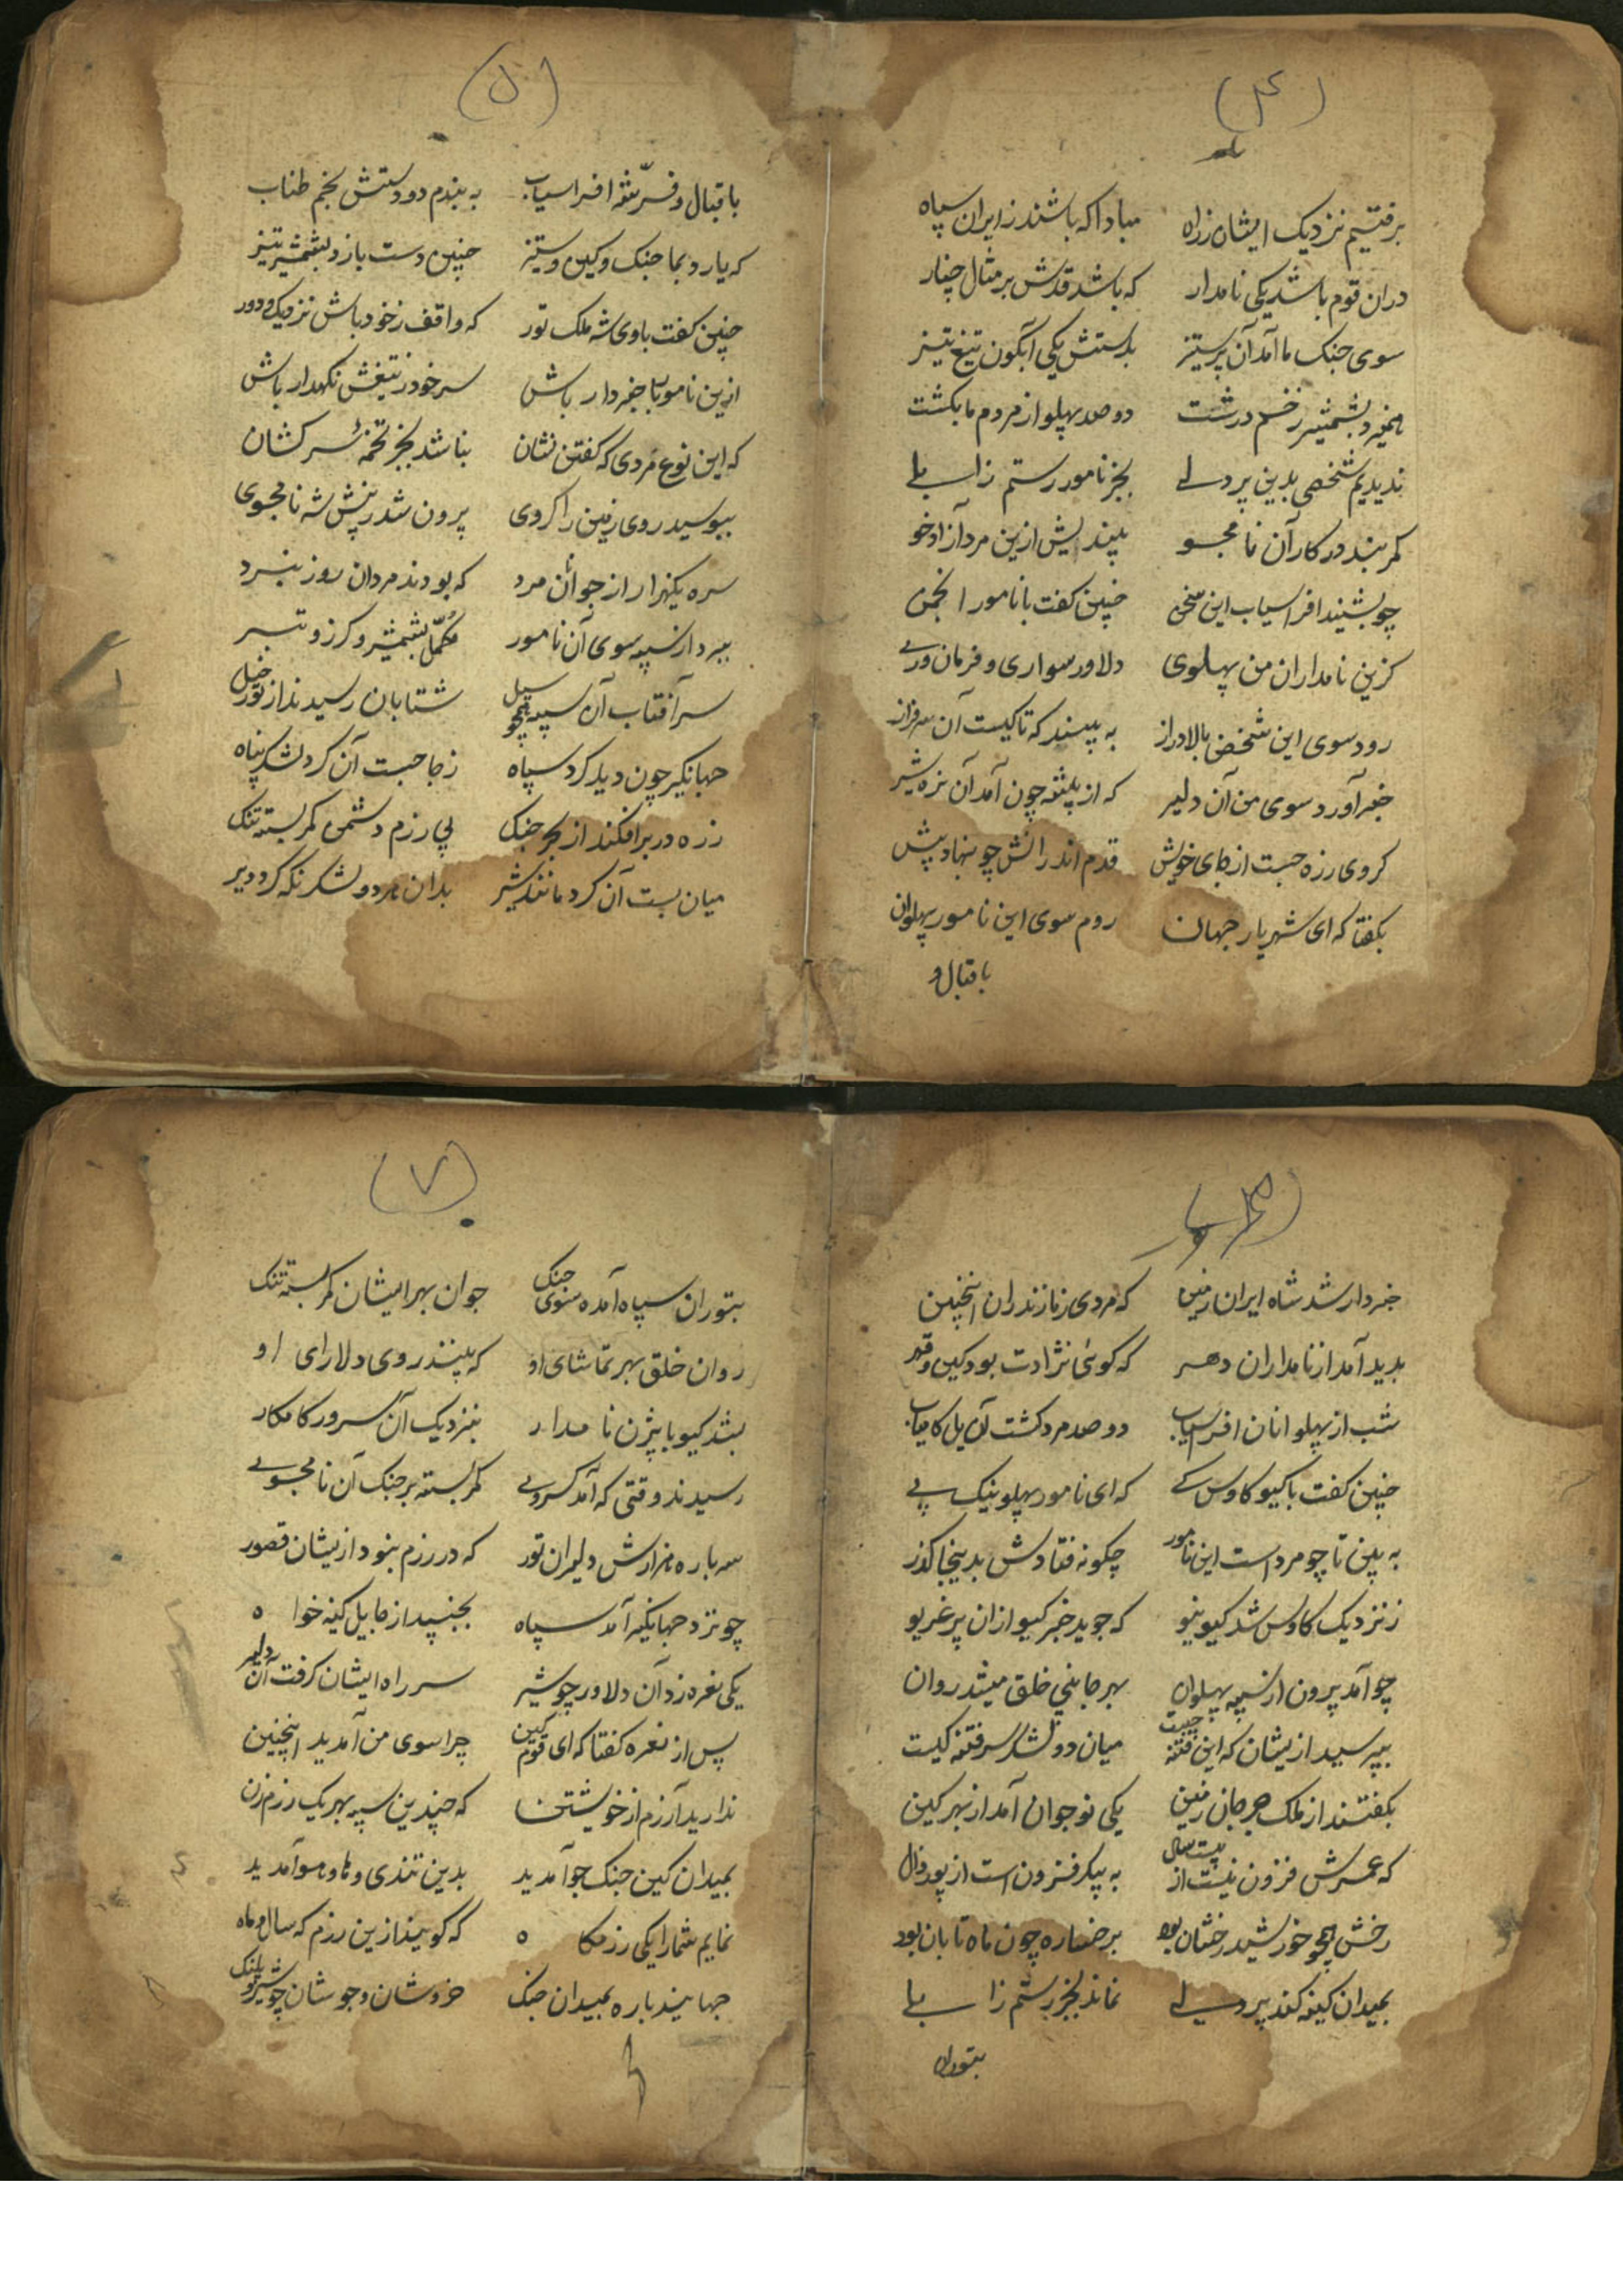 (۴)
برفتیم نزدیک ایشان ز راه مبادا که باشند ز ایران سپاه
دران قوم باشد یکی نامدار که باشد قدش بر مثال چنار
سوی جنک ما آمد آن پر ستیز بدستش یکی آبکون تیغ تیز
همیزد بشمشیر زخم درشت دو صد پهلو از مردم ما بکشت
ندیدیم شخصی بدین پر دلی بجز نامور رستم زابلی
کمر بندد در کار آن نامجو بیندیش ازین مرد آزاد خو
چو بشنید افراسیاب این سخن چنین کفت با نامور انجمن
کزین نامداران من پهلوی دلاور سواری و فرمان وری
رود سوی این شخص بالا دراز به بیند که تا کیست آن سرفراز
خبر آورد سوی من آن دلیر که از بیشه چون آمد آن نره شیر
کروی زره جست از جای خویش قدم اندر انش چو بنهاد پیش
بکفتا که ای شهریار جهان روم سوی این نامور پهلوان
باقبال و
(۵)
باقبال و فر شه افراسیاب به بندم دو دستش بخم طناب
که یارد بما جنک و کین و ستیز چنین دست بازد بشمشیر تیز
چنین کفت با وی شه ملک تور که واقف ز خود باش نزدیک و دور
ازین نامور با خبردار باش سر خود ز تیغش نکهدار باش
که این نوع مردی که کفتن نشان نباشد بجز تخمهٔ سرکشان
ببوسید روی زمین را کروی برون شد ز پیش شه نامجوی
سره یکهزار از جوانان مرد که بودند مردان روز نبرد
ببرد از سپه سوی آن نامور مکمل بشمشیر و کرز و تبر
سر آفتاب آن سپه همچو سیل شتابان رسیدند از تور خیل
جهانکیر چون دید کرد سپاه ز جا جست آن کرد لشکر پناه
زره در بر افکند از بهر جنک پی رزم دشمن کمر بسته تنک
میان بست آن کرد مانند شیر بدان مرد و لشکر نکه کرد دیر
خبردار شد شاه ایران زمین که مردی ز مازندران اینچنین
بدید آمد از نامداران دهر که کوئی نژادت بود کین و قهر
شب از پهلوانان افراسیاب دو صد مرد کشت آن یل کامیاب
چنین کفت با کیو کاوس کی که ای نامور پهلو نیک پی
به بین تا چو مرد است این نامور چکونه فتادش بدینجا کذر
ز نزدیک کاوس شد کیو نیو که جوید خبر کیو ازان پر غریو
چو آمد برون از سپه پهلوان بهر جانبی خلق میشد روان
بپرسید ازیشان که این فتنه چیست میان دو لشکر سر فتنه کیست
بکفتند از ملک جرجان زمین یکی نوجوان آمد از بهر کین
که عمرش فزون نیست از بیست سال به پیکر فزون است از پور زال
رخش همچو خورشید رخشان بود بر خساره چون ماه تابان بود
بمیدان کینه کند پر دلی نماند بجز رستم زابلی
بتوران
(۷)
بتوران سپاه آمده سوی جنک جوان بهر ایشان کمر بسته تنک
روان خلق بهر تماشای او که بینند روی دلارای او
بشد کیو با بیژن نامدار بنزدیک آن سرور کامکار
رسیدند وقتی که آمد کروی کمر بسته بر جنک آن نامجوی
سه باره هزارش دلیران تور که در رزم بنود ازیشان قصور
چو نزد جهانکیر آمد سپاه بجنبید از جا یل کینه خواه
یکی نعره زد آن دلاور چو شیر سر راه ایشان کرفت آن دلیر
پس از نعره کفتا که ای قوم کین چرا سوی من آمدید اینچنین
ندارید آزرم از خویشتن که چندین سپه بهر یک رزم زن
بمیدان کین جنک جو آمدید بدین تندی و های و هو آمدید
نمایم شما را یکی رزمکاه که کویند ازین رزم که سال و ماه
جهانید باره بمیدان جنک خروشان و جوشان چو شیر و پلنک